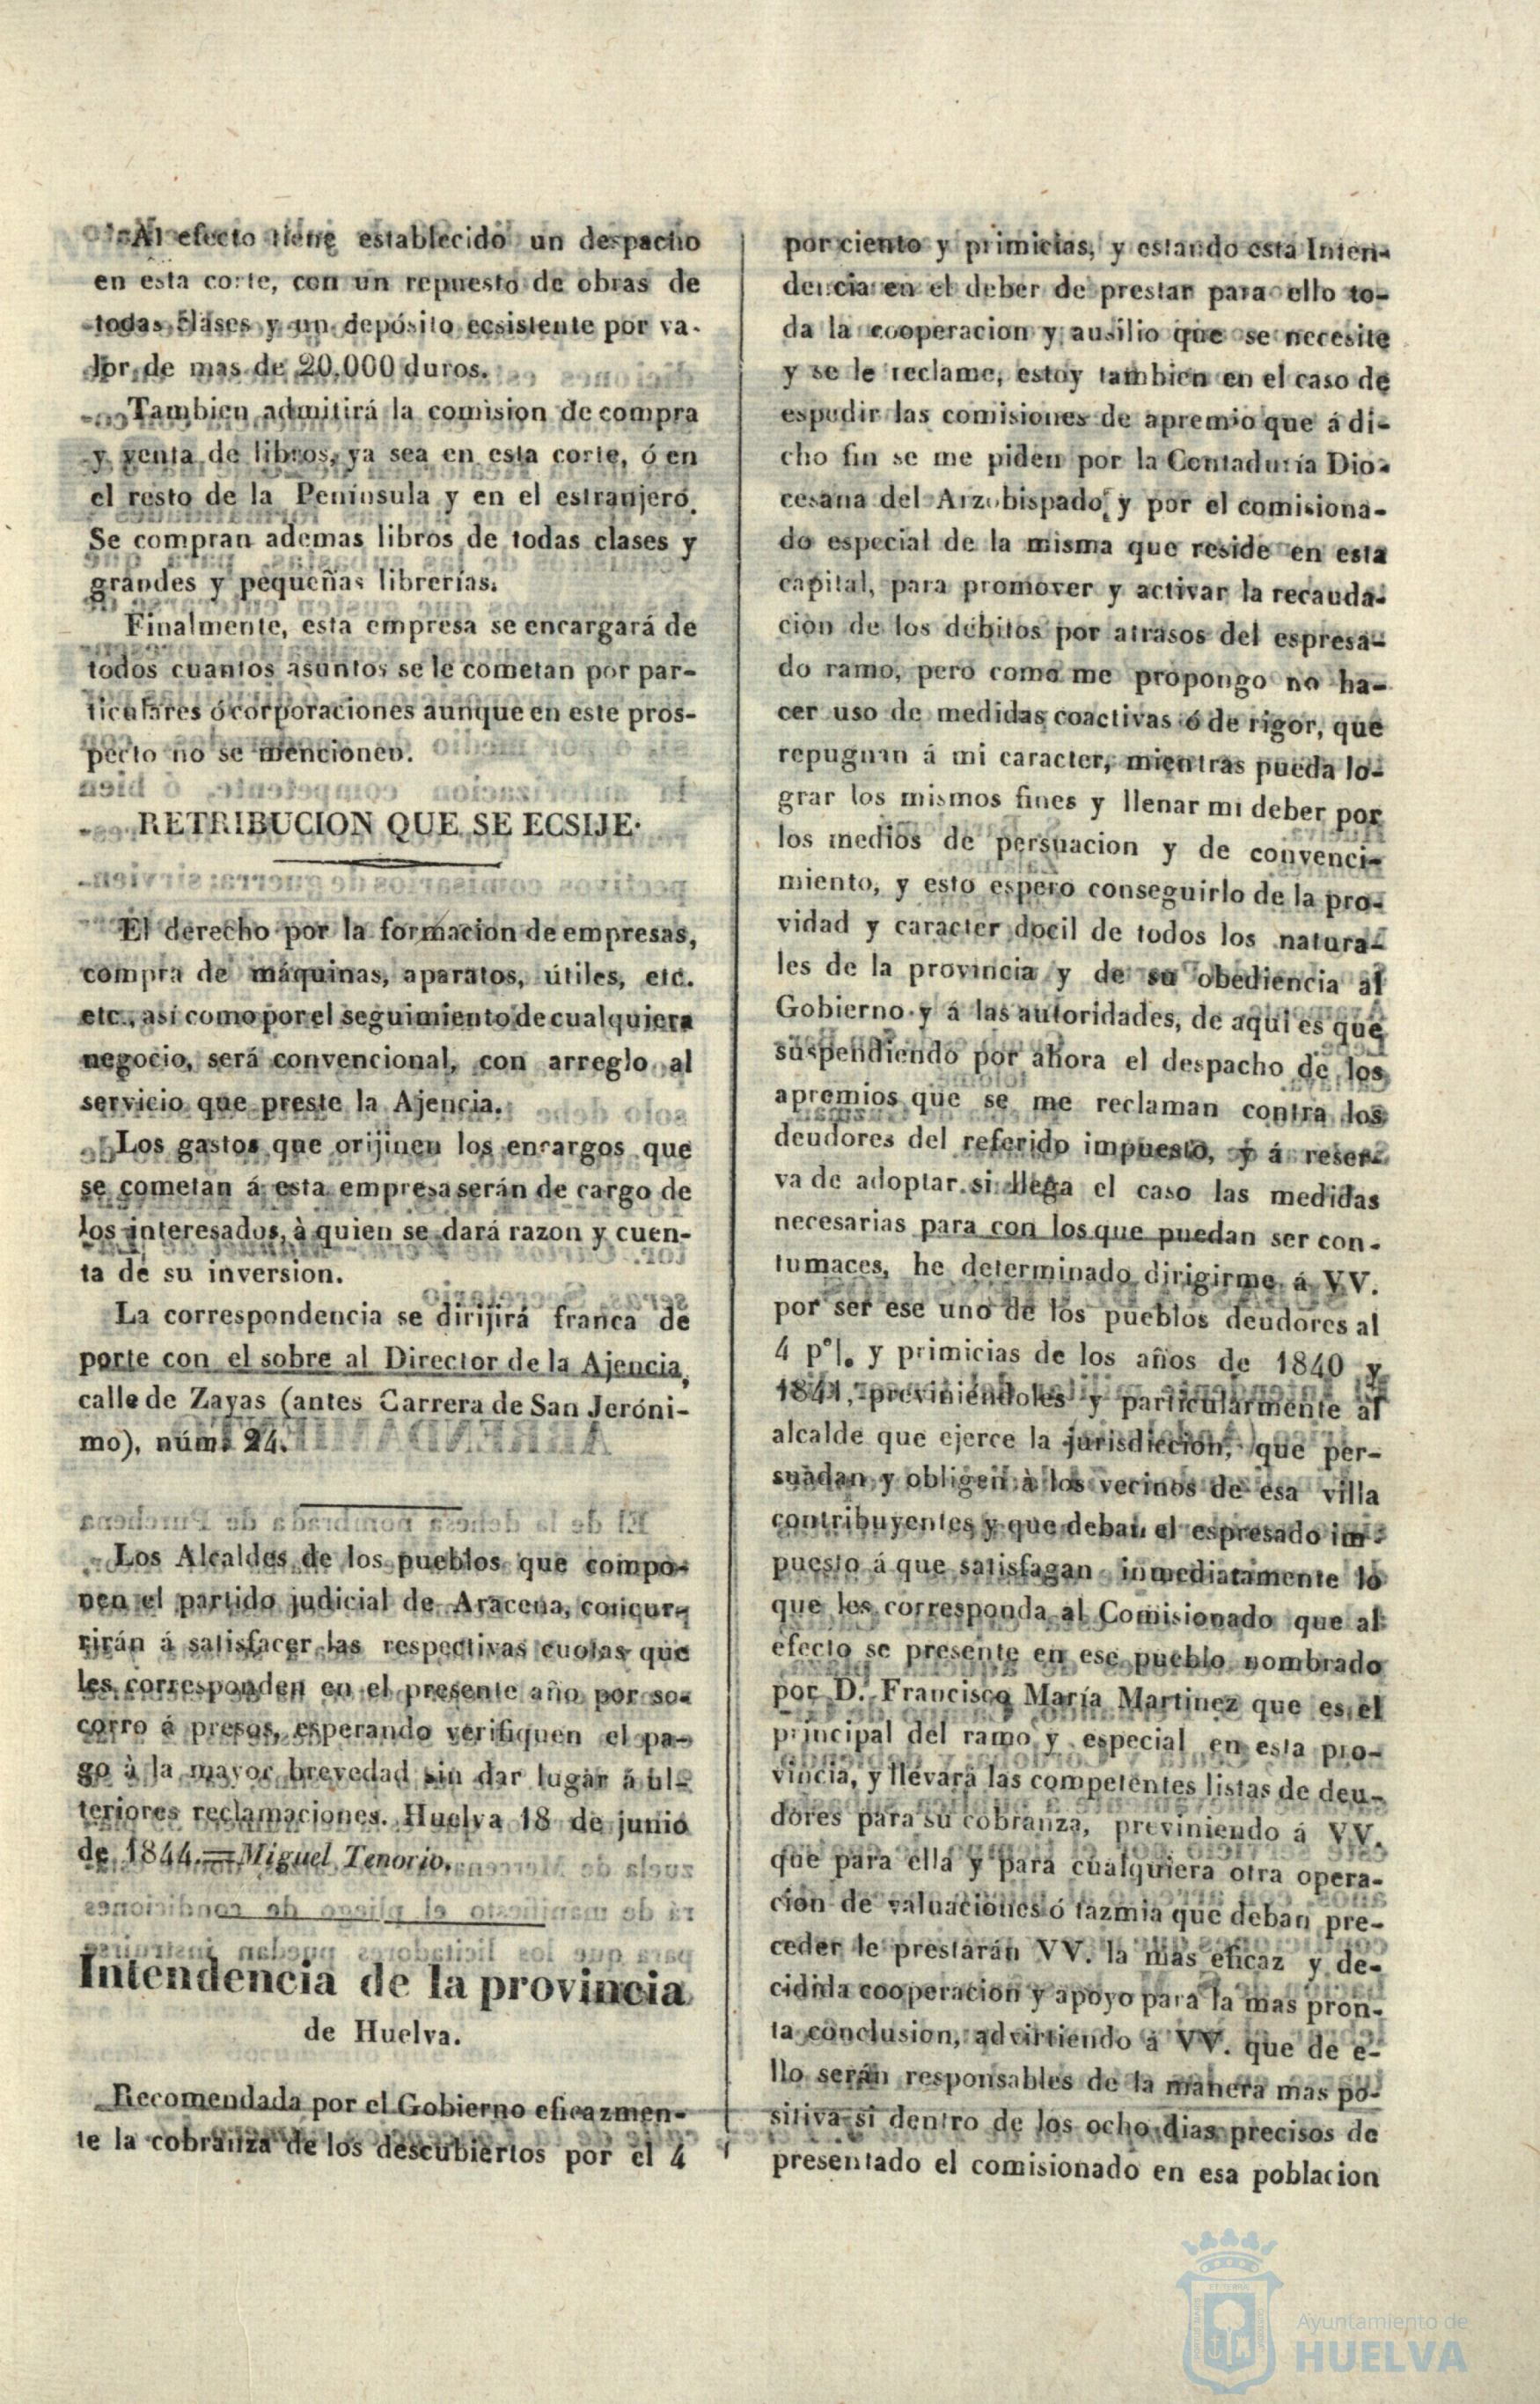 Al efecto tiene establecido un despacho
en esta corte, con un repuesto de obras de
todas clases y un depósito ecsistente por va-
lor de mas de 20.000 duros.
Tambien admitirá la comision de compra
y venta de libros, ya sea en esta corte, ó en
el resto de la Península y en el estranjero.
Se compran ademas libros de todas clases y
grandes y pequeñas librerías.
Finalmente, esta empresa se encargará de
todos cuantos asuntos se le cometan por par-
ticulares ó corporaciones aunque en este pros-
pecto no se mencionen.
RETRIBUCION QUE SE ECSIJE.
El derecho por la formacion de empresas,
compra de máquinas, aparatos, útiles, etc.
etc., asi como por el seguimiento de cualquiera
negocio, será convencional, con arreglo al
servicio que preste la Ajencia.
Los gastos que orijinen los encargos que
se cometan á esta empresa serán de cargo de
los interesados, à quien se dará razon y cuen-
ta de su inversion.
La correspondencia se dirijirá franca de
porte con el sobre al Director de la Ajencia,
calle de Zayas (antes Carrera de San Jeróni-
mo), núm. 24.
Los Alcaldes de los pueblos que compo-
nen el partido judicial de Aracena, concur-
rirán á satisfacer las respectivas cuotas que
les corresponden en el presente año por so-
corro á presos, esperando verifiquen el pa-
go à la mayor brevedad sin dar lugar á ul-
teriores reclamaciones. Huelva 18 de junio
de 1844.=Miguel Tenorio.
Intendencia de la provincia
de Huelva.
Recomendada por el Gobierno eficazmen-
te la cobranza de los descubiertos por el 4
por ciento y primicias, y estando esta Inten-
dencia en el deber de prestar para ello to-
da la cooperacion y ausilio que se necesite
y se le reclame, estoy tambien en el caso de
espedir las comisiones de apremio que á di-
cho fin se me piden por la Contaduría Dio-
cesana del Arzobispado, y por el comisiona-
do especial de la misma que reside en esta
capital, para promover y activar la recauda-
cion de los débitos por atrasos del espresa-
do ramo, pero como me propongo no ha-
cer uso de medidas coactivas ó de rigor, que
repugnan á mi caracter, mientras pueda lo-
grar los mismos fines y llenar mi deber por
los medios de persuacion y de convenci-
miento, y esto espero conseguirlo de la pro-
vidad y caracter docil de todos los natura-
les de la provincia y de su obediencia al
Gobierno y á las autoridades, de aqui es que
suspendiendo por ahora el despacho de los
apremios que se me reclaman contra los
deudores del referido impuesto, y á reser-
va de adoptar si llega el caso las medidas
necesarias para con los que puedan ser con-
tumaces, he determinado dirigirme á VV.
por ser ese uno de los pueblos deudores al
4 p°|. y primicias de los años de 1840 y
1841, previniéndoles y particularmente al
alcalde que ejerce la jurisdiccion, que per-
suadan y obligen à los vecinos de esa villa
contribuyentes y que deban el espresado im-
puesto á que satisfagan inmediatamente lo
que les corresponda al Comisionado que al
efecto se presente en ese pueblo nombrado
por D. Francisco María Martinez que es el
principal del ramo y especial en esta pro-
vincia, y llevará las competentes listas de deu-
dores para su cobranza, previniendo á VV.
que para ella y para cualquiera otra opera-
cion de valuaciones ó tazmia que deban pre-
ceder le prestarán VV. la mas eficaz y de-
cidida cooperacion y apoyo para la mas pron-
ta conclusion, advirtiendo á VV. que de e-
llo serán responsables de la manera mas po-
sitiva si dentro de los ocho dias precisos de
presentado el comisionado en esa poblacion
Ayuntamiento de
HUELVA